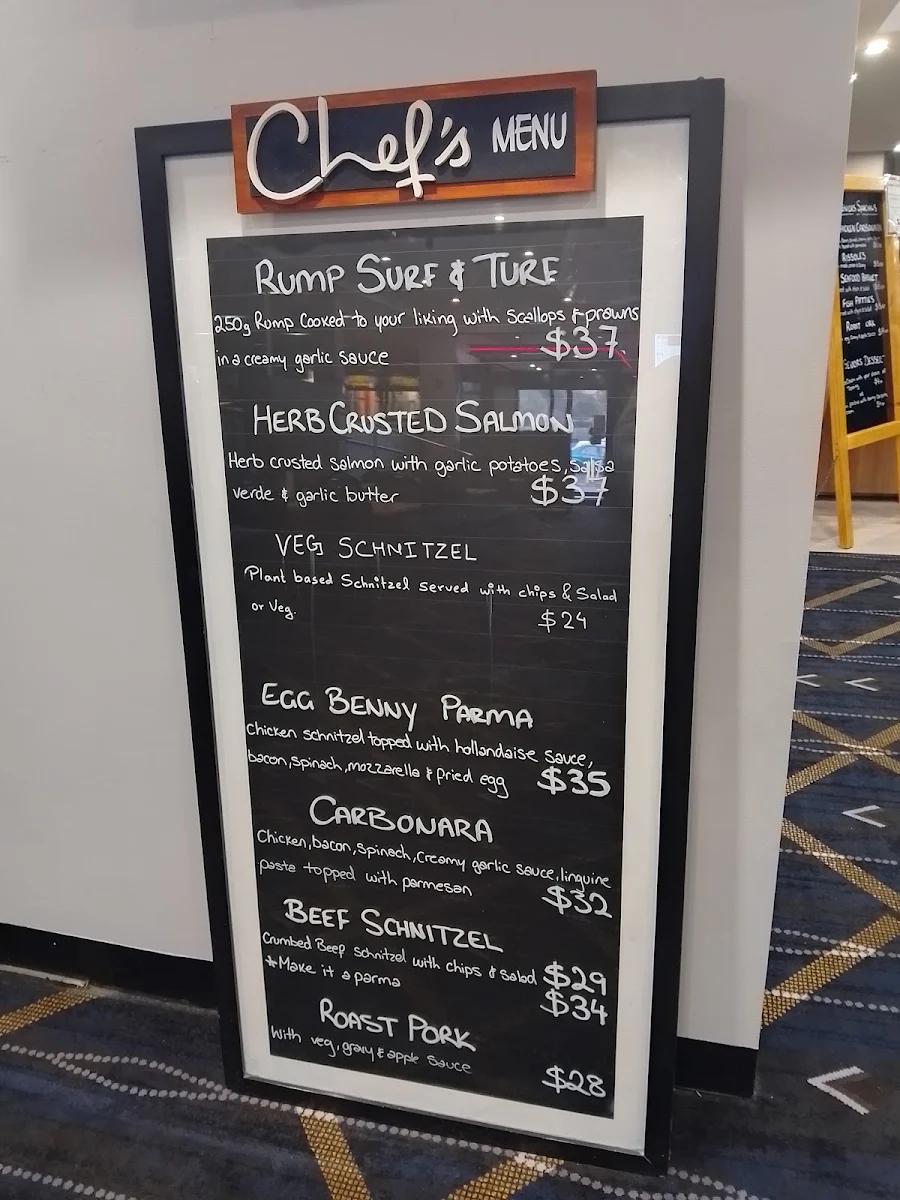 Chef's MENU
RUMP SURF & TURF
250g Rump Cooked to your liking with Scallops & prawns
in a creamy garlic sauce $37
HERB CRUSTED SALMON
Herb crusted salmon with garlic potatoes, salsa
verde & garlic butter $37
VEG SCHNITZEL
Plant based Schnitzel served with chips & Salad
or Veg. $24
EGG BENNY PARMA
Chicken schnitzel topped with hollandaise sauce,
bacon, spinach, mozzarella & fried egg $35
CARBONARA
Chicken, bacon, spinach, creamy garlic sauce, linguine
pasta topped with parmesan $32
BEEF SCHNITZEL
Crumbed Beef schnitzel with chips & salad $29
*Make it a parma $34
ROAST PORK
With veg, gravy & apple sauce
$28
RISSOLES
SEAFOOD BASKET
FISH PATTIES
ROAST